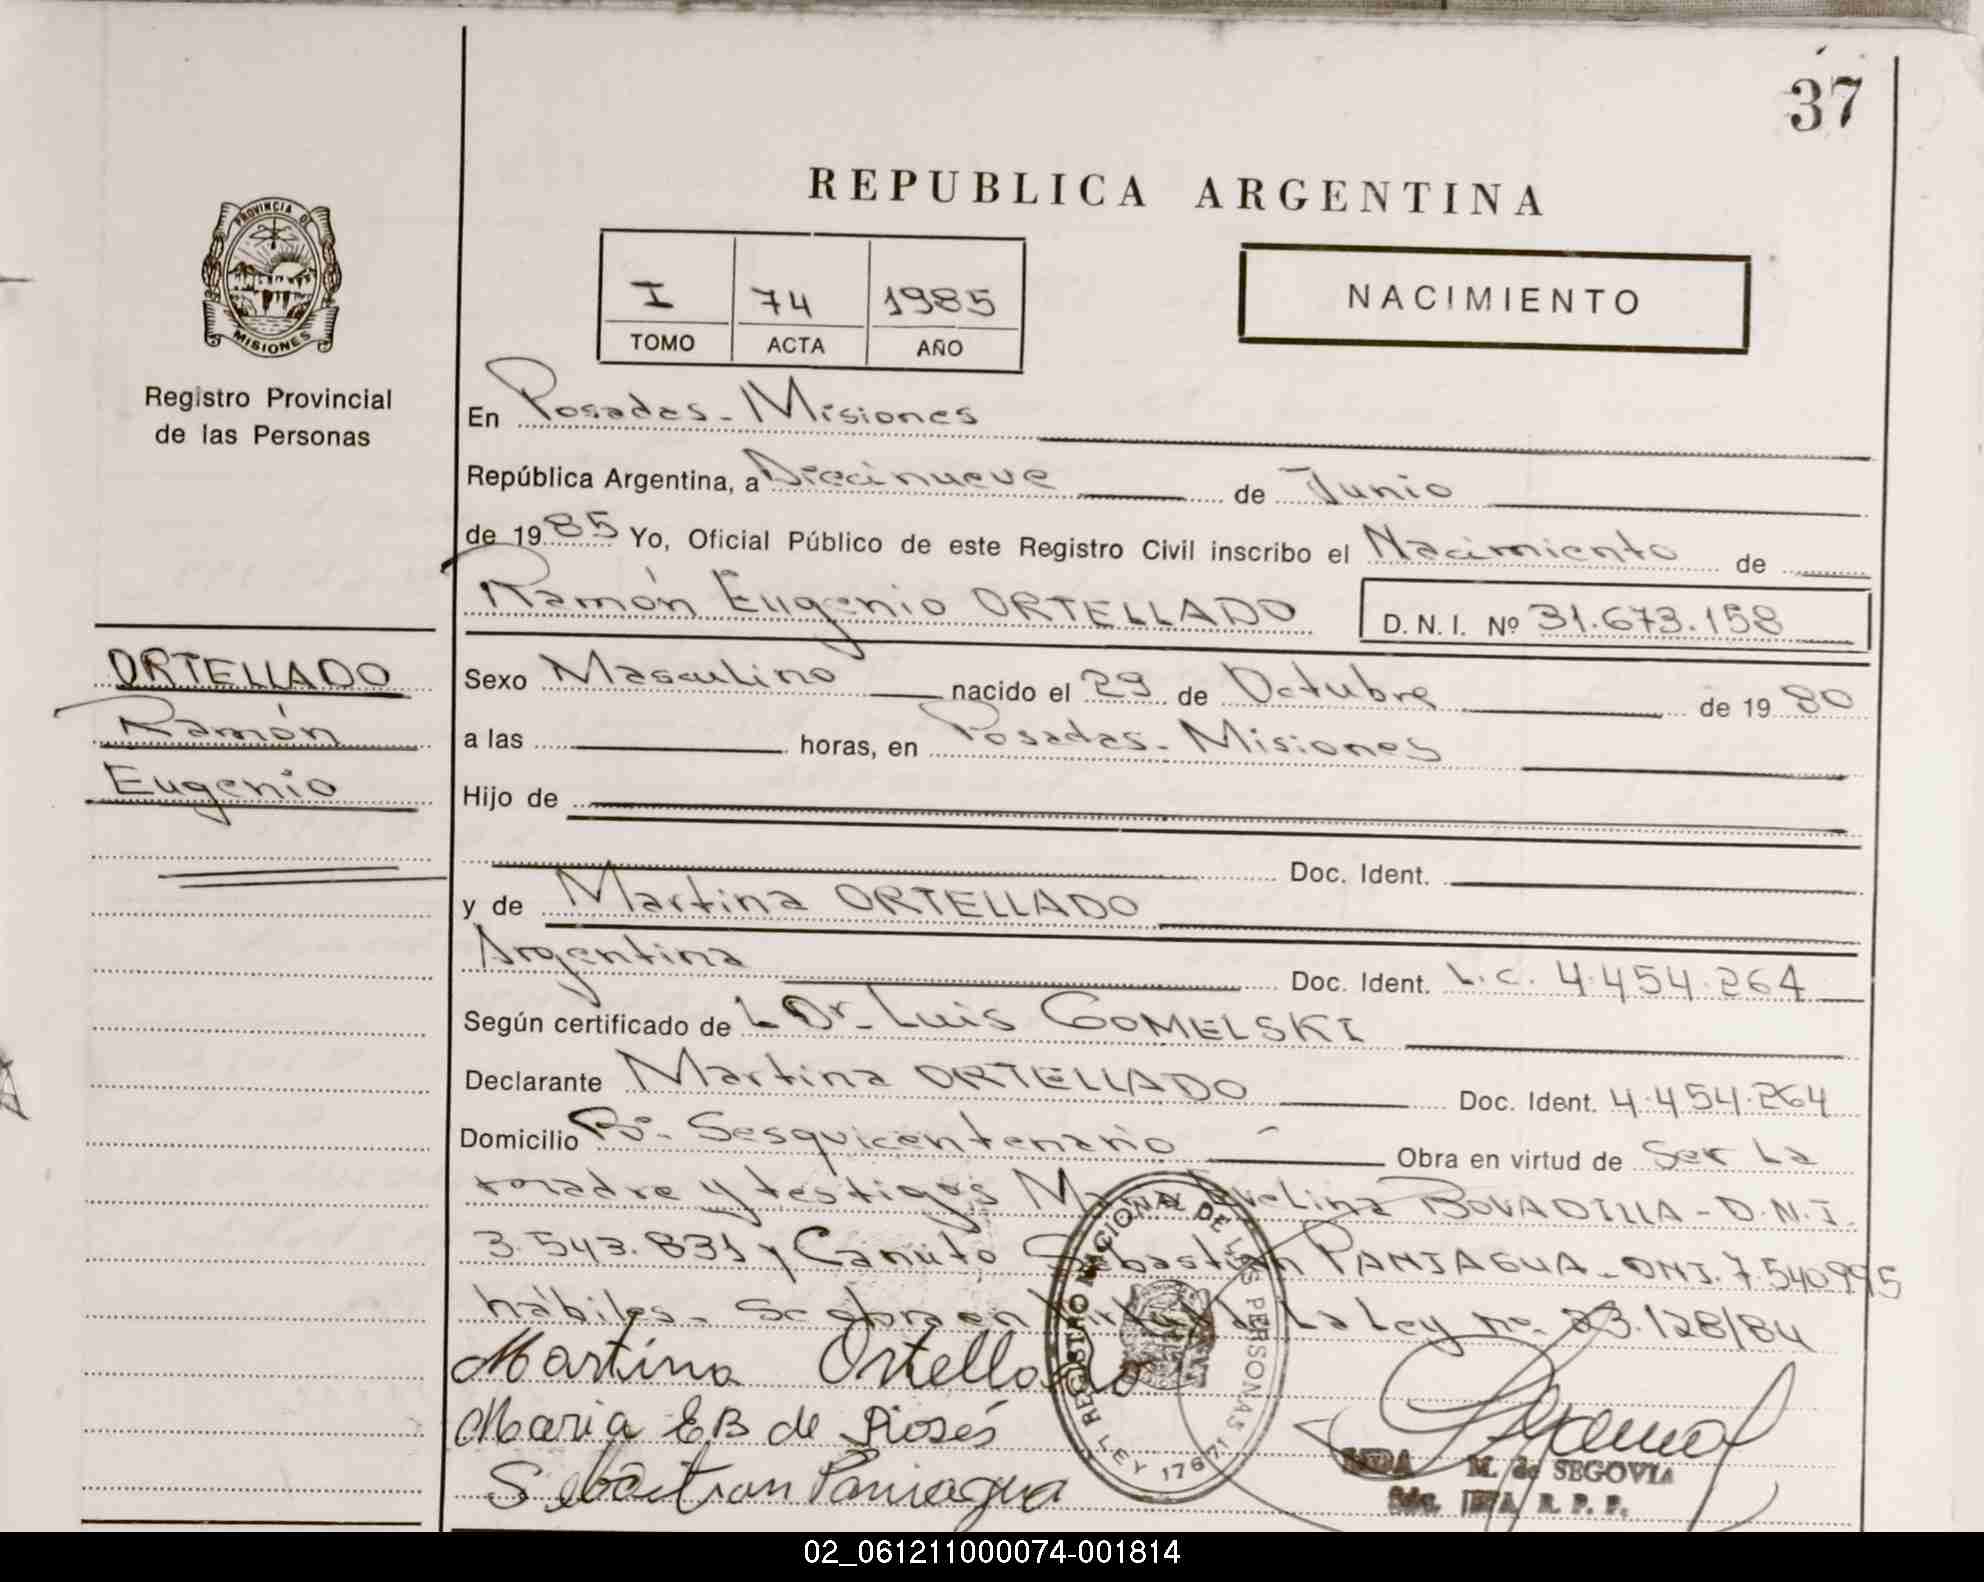 37
REPUBLICA ARGENTINA
PROVINCIA DE
MISIONES
Registro Provincial
de las Personas
I 74 1985
TOMO ACTA AÑO
NACIMIENTO
En Posadas - Misiones
República Argentina, a Diecinueve de Junio
de 1985 Yo, Oficial Público de este Registro Civil inscribo el Nacimiento de
Ramón Eugenio ORTELLADO D. N. I. Nº 31.673.158
ORTELLADO
Ramón
Eugenio
Sexo Masculino nacido el 29 de Octubre de 1980
a las horas, en Posadas - Misiones
Hijo de
Doc. Ident.
y de Martina ORTELLADO
Argentina Doc. Ident. L.C. 4.454.264
Según certificado de L Dr. Luis GOMELSKI
Declarante Martina ORTELLADO Doc. Ident. 4.454.264
Domicilio Bº. Sesquicentenario Obra en virtud de Ser La
madre y testigos Evelina BOVADILLA - D.N.I.
3.543.831 y Canuto Sebastian PANIAGUA - DNI. 7.540.995
hábiles - Se obra en virtud de La Ley nº. 23.128/84
Martina Ortellado
Maria E B de
Sebastian Paniagua
REGISTRO NACIONAL DE LAS PERSONAS
LEY 17671
M. de SEGOVIA
R. P. P.
02_061211000074-001814